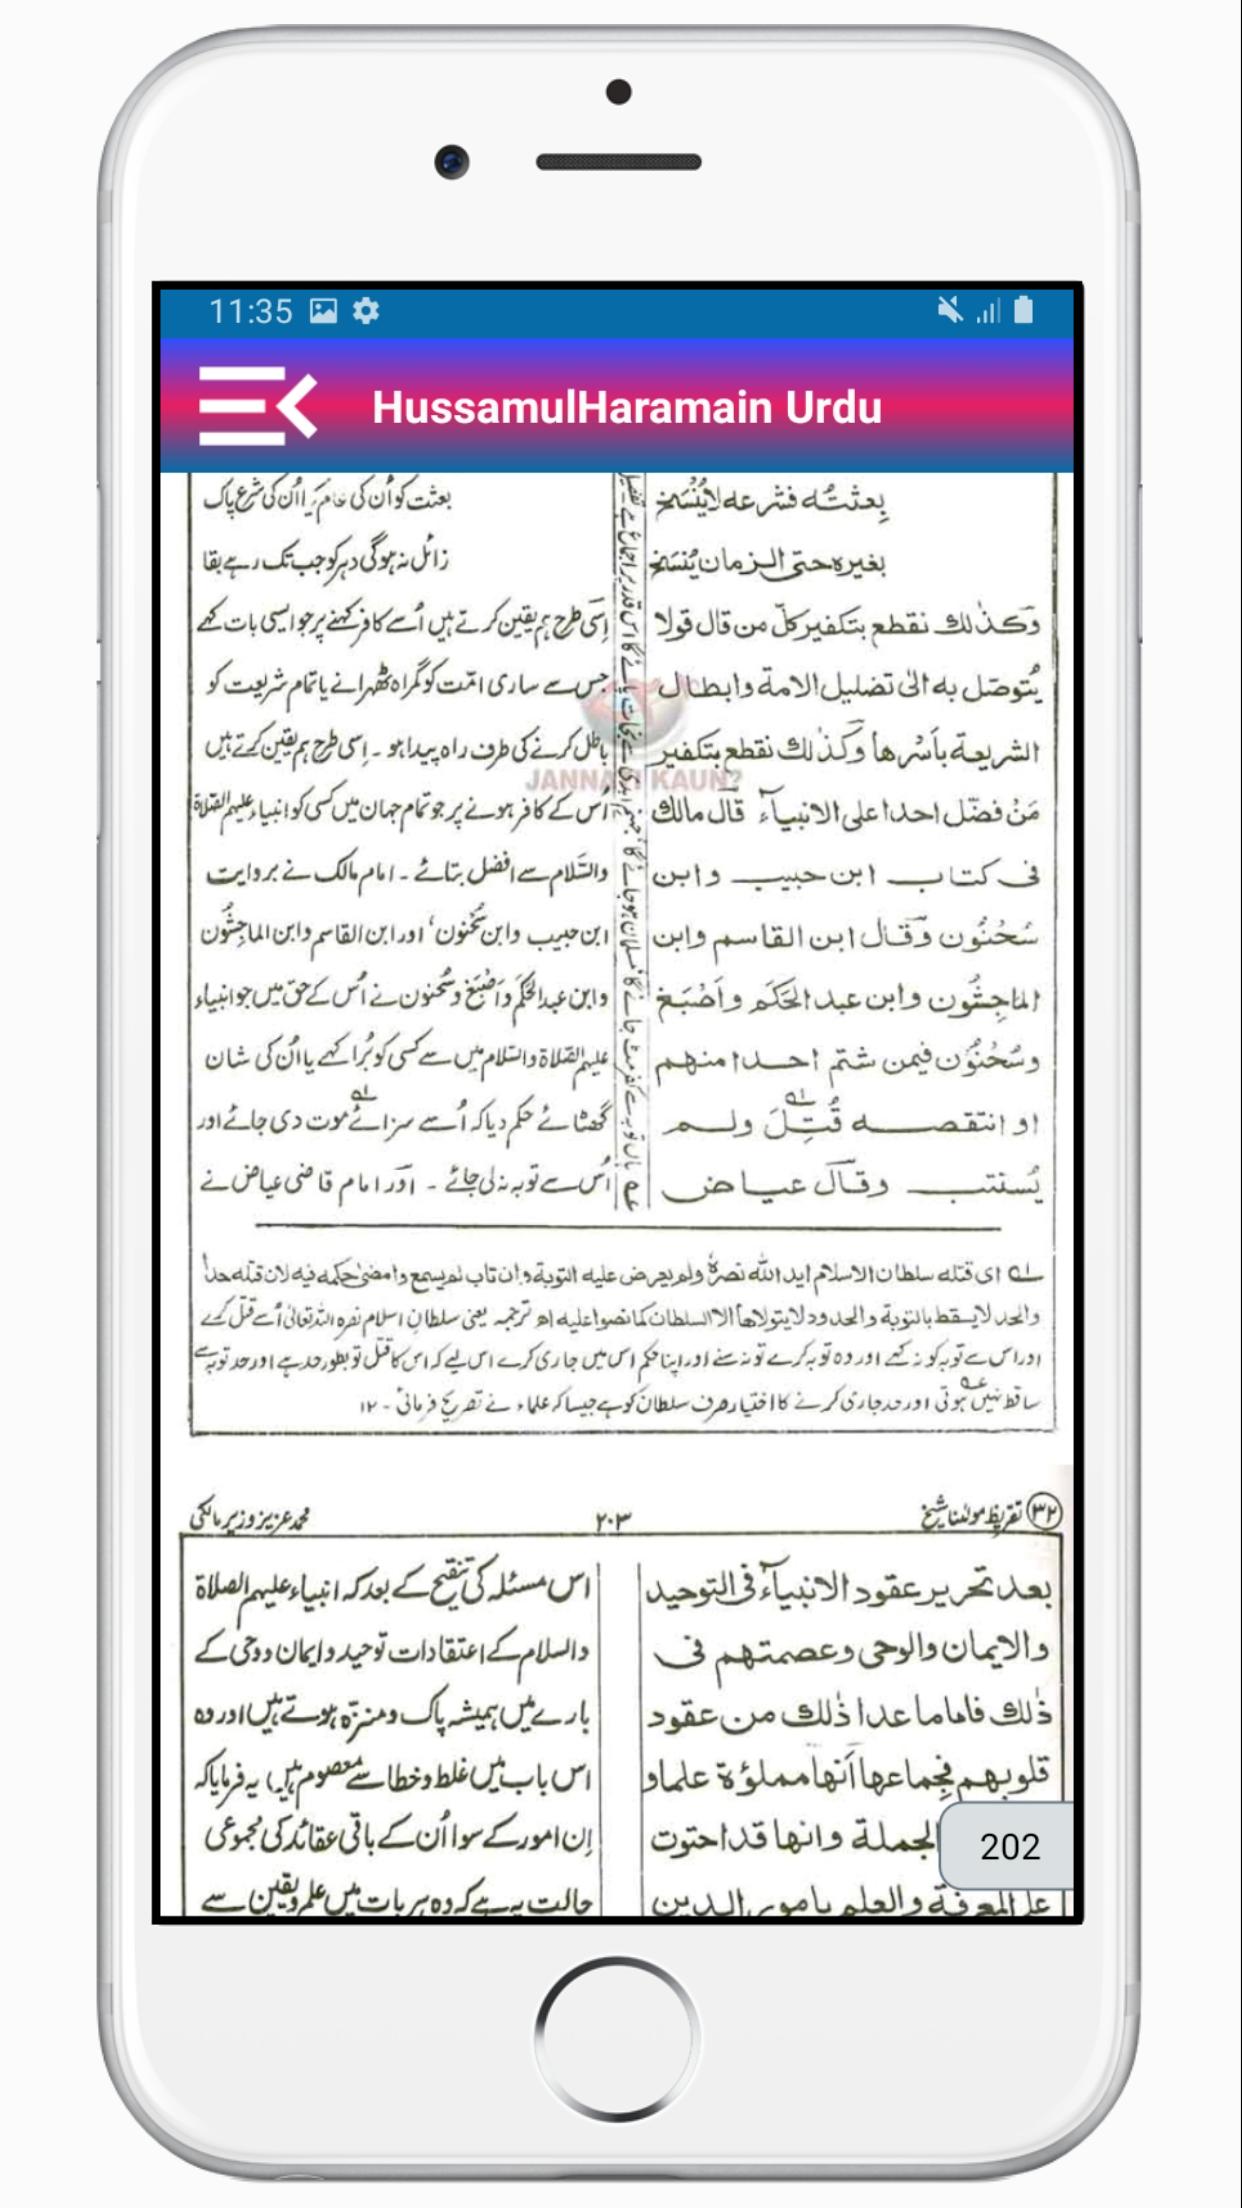 11:35
HussamulHaramain Urdu
بعثتُه فشرعه لا يُنْسَخ
بغيره حتى الزمان يُنسَخ
وكذٰلك نقطع بتكفير كلّ من قال قولا
يُتوصّل به الىٰ تضليل الامة وابطال
الشريعة بأسْرها وكذٰلك نقطع بتكفير
مَنْ فضّل احدا على الانبياءٓ قال مالك
فى كتاب ابن حبيب وابن
سُحْنُون وقال ابن القاسم وابن
الماجِشُون وابن عبد الحَكَم واَصْبَغ
وسُحْنُون فيمن شتم احدا منهم
او انتقصه قُتِلَ ولم
يُستتب وقال عياض
بعثت کو اُن کی عام کیا اُن کی شرع پاک
زائل نہ ہوگی دہر کو جب تک رہے بقا
اِسی طرح ہم یقین کرتے ہیں اُسے کافر کہنے پر جو ایسی بات کہے
جس سے ساری امّت کو گمراہ ٹھہرانے یا تمام شریعت کو
باطل کرنے کی طرف راہ پیدا ہو ۔ اِسی طرح ہم یقین کرتے ہیں
اُس کے کافر ہونے پر جو تمام جہان میں کسی کو انبیاء علیہم الصّلاة
والسّلام سے افضل بتائے ۔ امام مالک نے بروایت
ابن حبیب وابن سُحْنون، اور ابن القاسم وابن الماجِشُون
وابن عبد الحَکَم واَصْبَغ وسُحْنون نے اُس کے حق میں جو انبیاء
علیہم الصّلاة والسّلام میں سے کسی کو بُرا کہے یا اُن کی شان
گھٹائے حکم دیا کہ اُسے سزائے موت دی جائے اور
اُس سے توبہ نہ لی جائے ۔ اور امام قاضی عیاض نے
JANNATI KAUN?
لہ اى قتله سلطان الاسلام ايد الله نصرهٗ ولم يعرض عليه التوبة وان تاب لم يسمع وامضىٰ حكمه فيه لان قتله حدا
والحد لا يسقط بالتوبة والحدود لا يتولاها الا السلطان كما نصوا عليه اھ ترجمہ یعنی سلطانِ اسلام نصرہ اللہ تعالیٰ اُسے قتل کرے
اور اس سے توبہ کو نہ کہے اور وہ توبہ کرے تو نہ سنے اور اپنا حکم اس میں جاری کرے اس لیے کہ اس کا قتل تو بطور حد ہے اور حد توبہ سے
ساقط نہیں ہوتی اور حد جاری کرنے کا اختیار صرف سلطان کو ہے جیسا کہ علماء نے تصریح فرمائی ۔ ۱۲
۳۲ تقریظ مولٰنا شیخ
۲۰۳
محمد عزیز وزیر مالکی
بعد تحرير عقود الانبياءٓ فى التوحيد
والايمان والوحى وعصمتهم فى
ذٰلك فاما ما عدا ذٰلك من عقود
قلوبهم فجماعها اَنّها مملوّة علما و
الجملة وانها قد احتوت
على المعرفة والعلم بامور الدين
اس مسئلہ کی تنقیح کے بعد کہ انبیاء علیہم الصلاة
والسلام کے اعتقادات توحید و ایمان و وحی کے
بارے میں ہمیشہ پاک ومنزّہ ہوتے ہیں اور وہ
اس باب میں غلط و خطا سے معصوم ہیں) یہ فرمایا کہ
اِن امور کے سوا اُن کے باقی عقائد کی مجموعی
حالت یہ ہے کہ وہ ہر بات میں علم ویقین سے
202